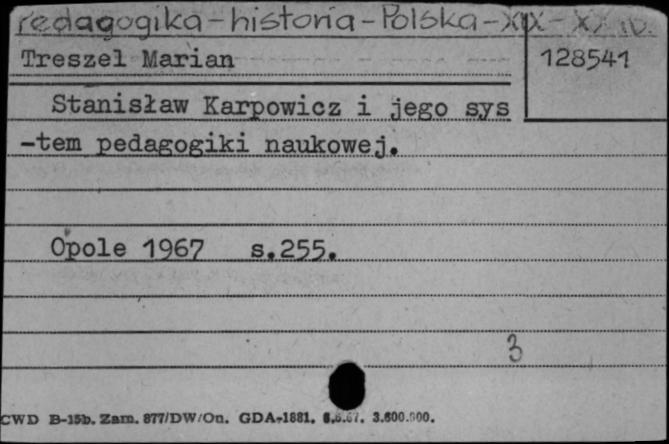 pedagogika-historia-Polska-XIX-XX w.
Treszel Marian
128541
Stanisław Karpowicz i jego sys
-tem pedagogiki naukowej.
Opole 1967 s.255.
3
CWD B-15b. Zam. 877/DW/On. GDA-1881. 6.6.67. 3.600.000.